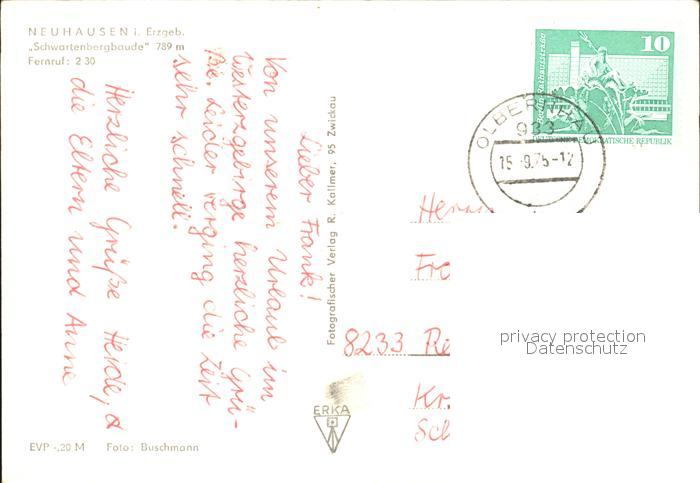 NEUHAUSEN i. Erzgeb.
„Schwartenbergbaude" 789 m
Fernruf: 2 30
Lieber Frank!
Von unserem Urlaub im
Westerzgebirge herzliche Grü-
ße. Leider verging die Zeit
sehr schnell.
Herzliche Grüße Heide, d
die Eltern und Anne
Fotografischer Verlag R. Kallmer, 95 Zwickau
10
DEUTSCHE DEMOKRATISCHE REPUBLIK
OLBERNHAU
933
15.-9.75-12
Herrn
Fr
8233 Re
Kr.
Sch
privacy protection
Datenschutz
ERKA
EVP -,20 M Foto: Buschmann